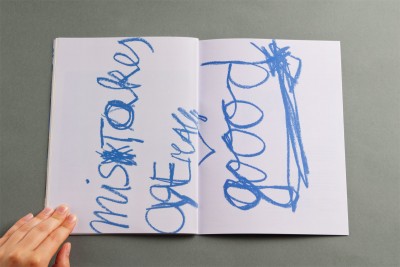 misTakes
ARE really
good